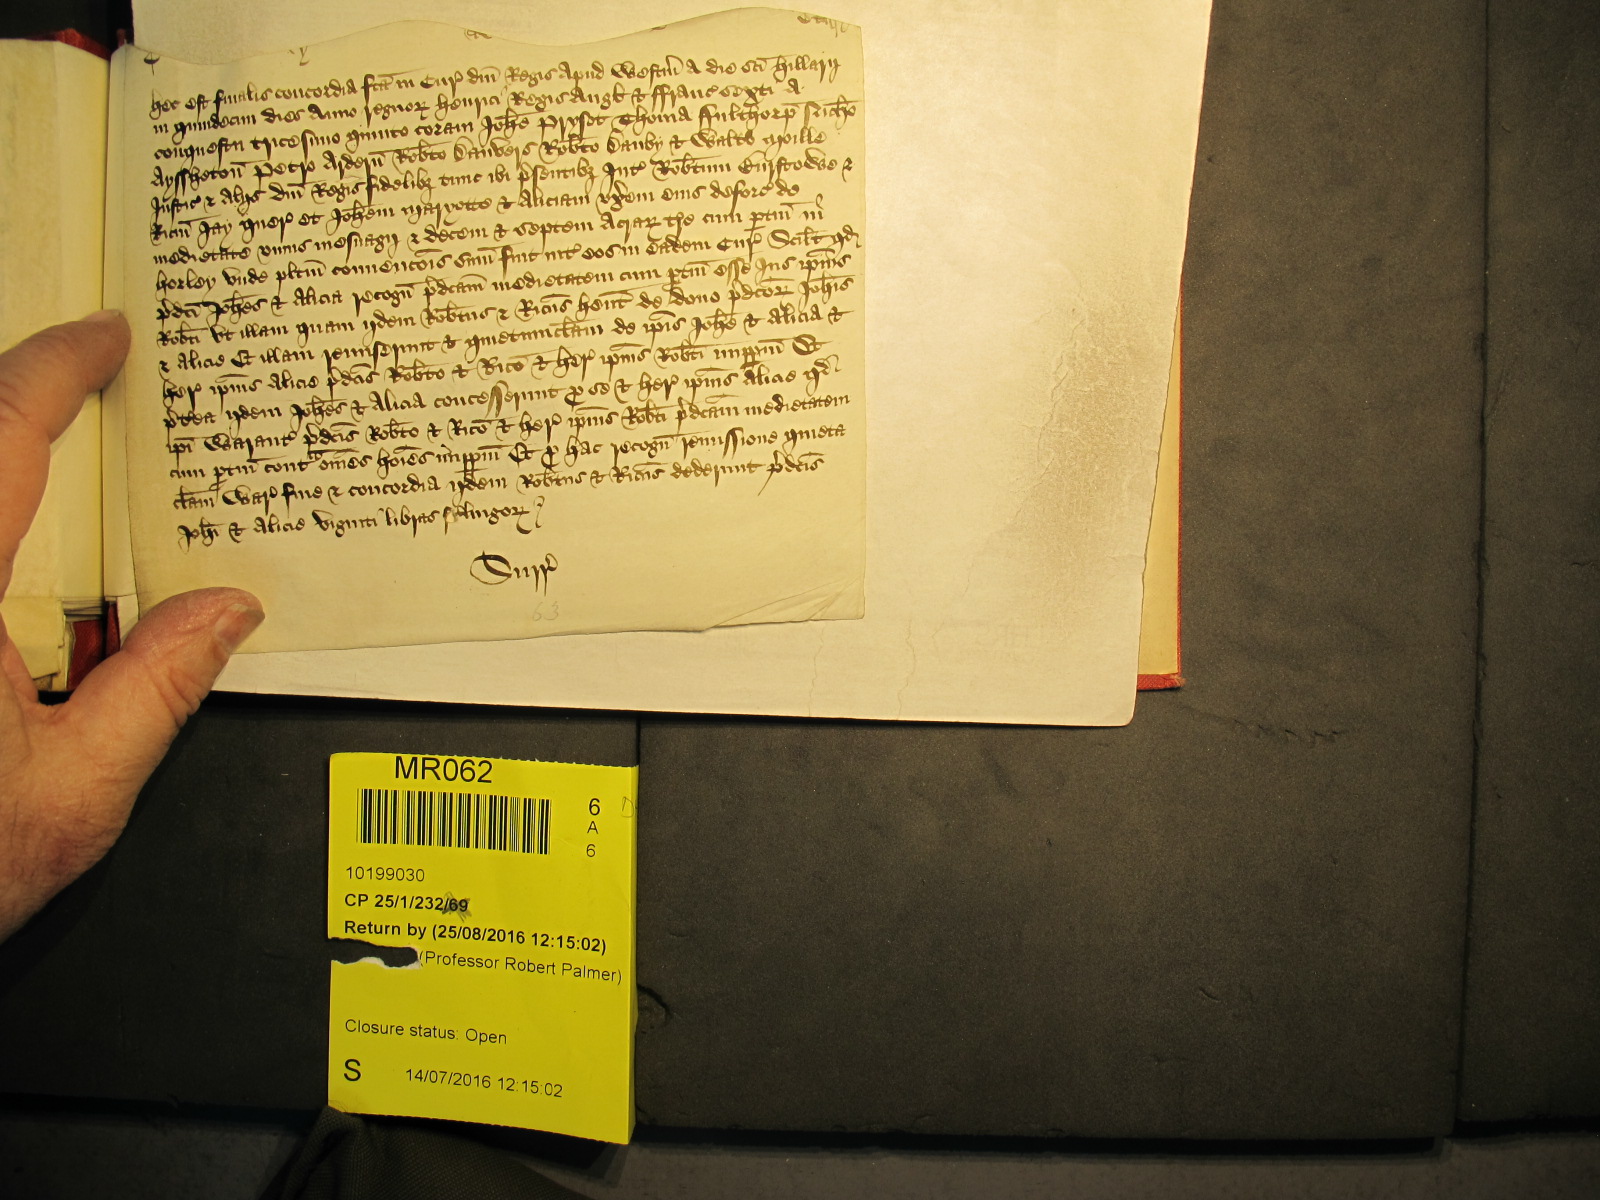 Hec est finalis concordia fca in Cur dni Regis apud Westm a die sci Hillarij
in quindecim dies anno regnor Henrici Regis Angl & Franc sexti a
conquestu tricesimo quinto coram Johe Prysot Thoma Fulthorp Nicho
Ayssheton Petro Ardern Robto Danvers Robto Danby & Walto Moille
Justic & alijs dni Regis fidelibz tunc ibi psentibz Int Robtum &
Ricm Jay quer et Johem Maryotte & Aliciam vxem eius deforc de
medietate vnius mesuagij & decem & septem acrar tre cum ptin in
Horley vnde plitm convencois sum fuit int eos in eadem Cur Scilt qd
pdci Johes & Alicia recogn pdcam medietatem cum ptin esse Jus ipius
Robti vt illam quam ijdem Robtus & Ricus hent de dono pdcor Johis
& Alicie Et illam remiserunt & quietumclam de ipis Johe & Alicia &
her ipius Alicie pdcis Robto & Rico & her ipius Robti impptm Et
ptea ijdem Johes & Alicia concesserunt p se & her ipius Alicie qd
ipi Warant pdcis Robto & Rico & her ipius Robti pdcam medietatem
cum ptin cont omes hoies impptm Et p hac recogn remissione quieta
clam War fine & concordia ijdem Robtus & Ricus dederunt pdcis
Johi & Alicie viginti libras sterlingor
Surr
63
MR062
6
A
6
10199030
CP 25/1/232/69
Return by (25/08/2016 12:15:02)
(Professor Robert Palmer)
Closure status: Open
S 14/07/2016 12:15:02